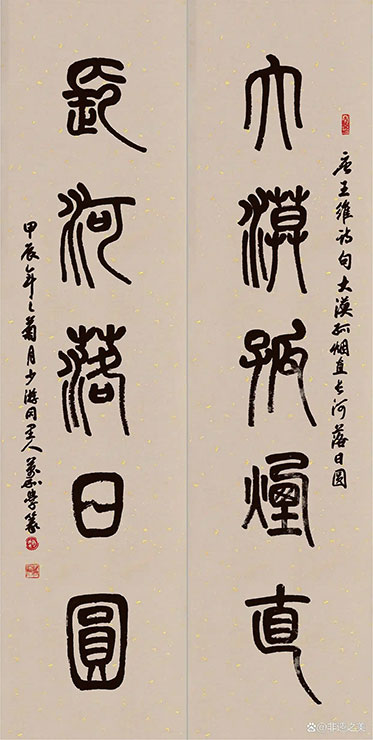 唐王維诗句大漠孤烟直长河落日圆
大漠孤煙直
長河落日圓
甲辰年之菊月少游同里人学篆
@非遗之美